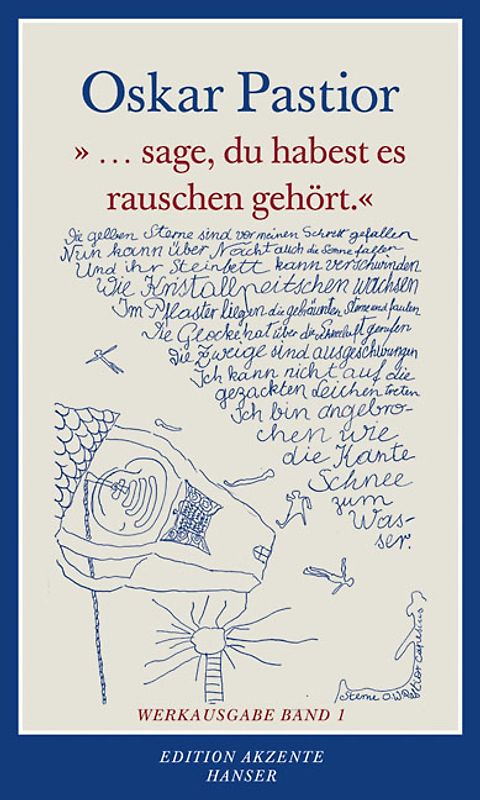 Oskar Pastior
» … sage, du habest es
rauschen gehört.«
Die gelben Sterne sind vor meinen Schritt gefallen
Nun kann über Nacht auch die Sonne fallen
Und ihr Steinbett kann verschwinden
Wie Kristallpeitschen wachsen
Im Pflaster liegen die gebräunten Sterne und faulen
Die Glocke hat über die Ehrschaft gerufen
die Zweige sind ausgeschwungen
Ich kann nicht auf die
gezackten Leichen treten
Ich bin angebro-
chen wie
die Kante
Schnee
zum
Was-
ser.
Sterne O.W. Pastior
WERKAUSGABE BAND 1
EDITION AKZENTE
HANSER